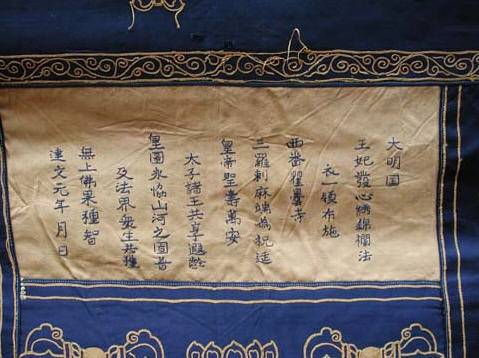 大明国
王妃發心绣錦襴法
衣一領布施
西番瞿曇寺
三羅剌麻端為祝延
皇帝聖壽萬安
太子諸王共享遐齡
皇圖永協山河之固普
及法界衆生共
無上佛果種智
建文元年 月 日